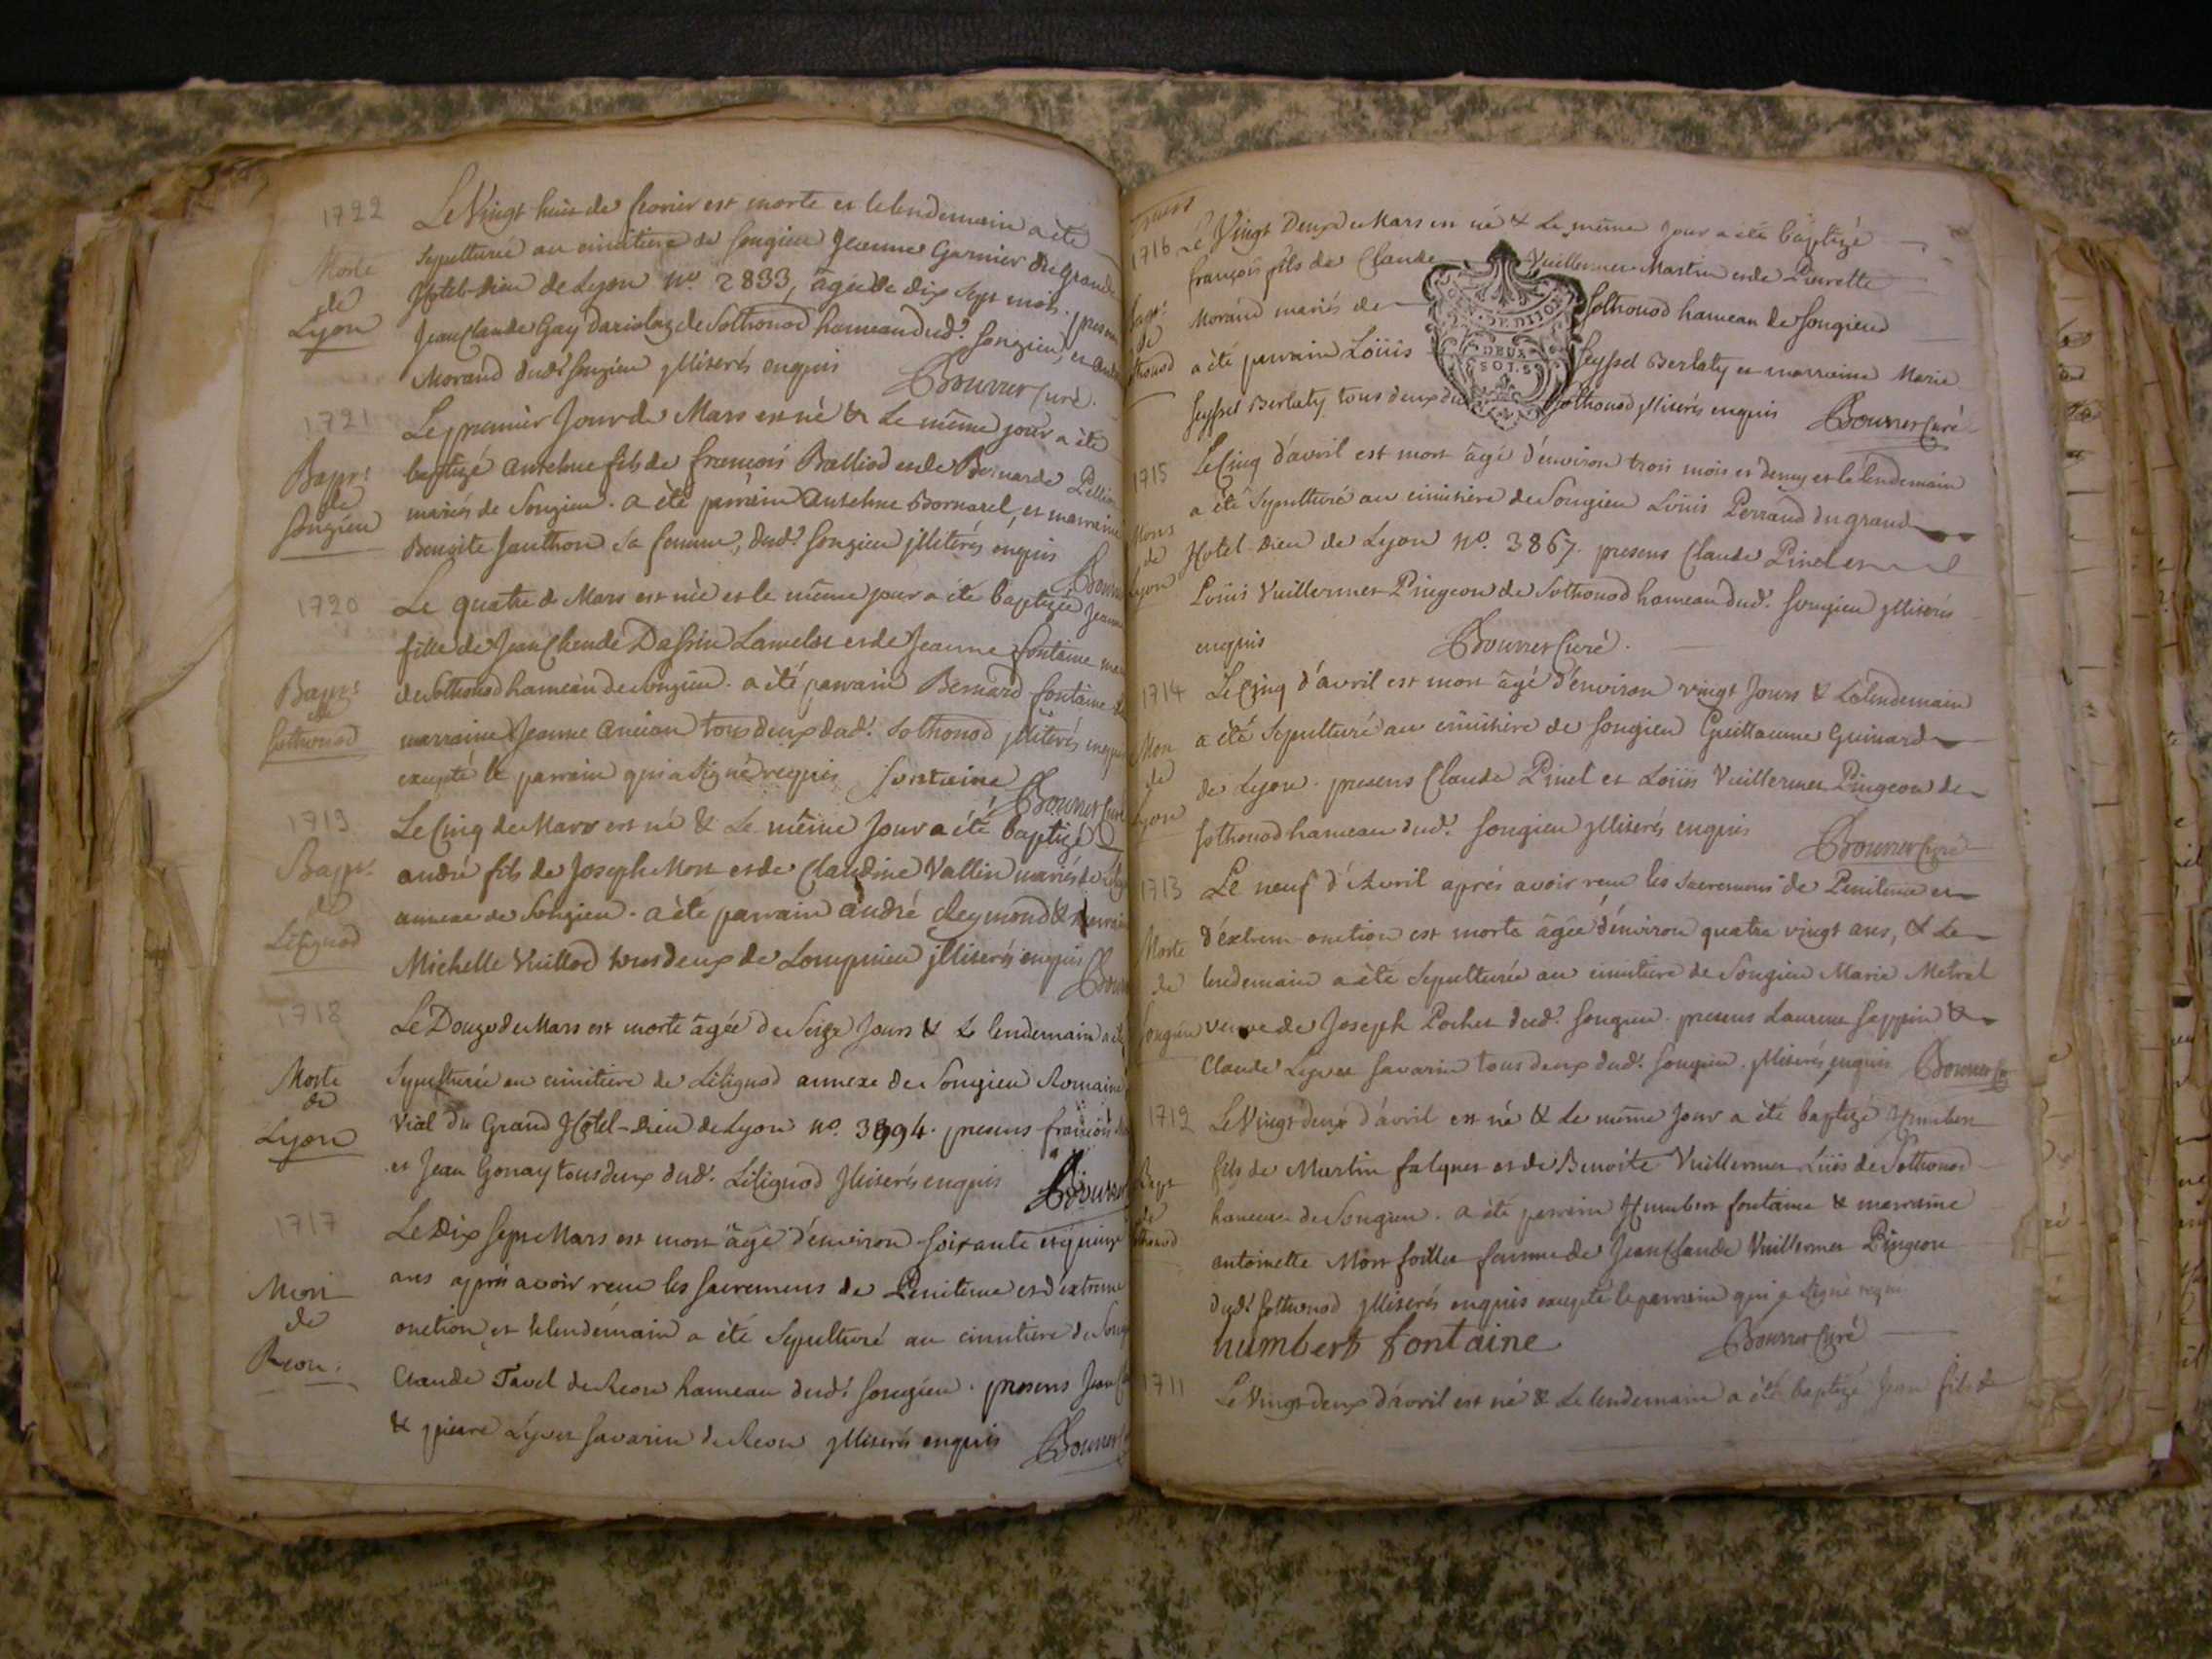 1722
Morte
de
Lyon
Le Vingt huit de fevrier est morte et le lendemain a été
sepulturée au cimitiere de Songieu Jeanne Garnier du grand
Hotel-Dieu de Lyon No. 2833, agée de dix sept mois. presens
Jean Claude Gay Dariolaz de Sothonod hameau dud. Songieu, et
Morand dud. Songieu jlliterés enquis Bourrer Curé.
1721
Bapt:
de
Songieu
Le premier Jour de Mars est né & Le même jour a été
baptizé Antelme fils de françois Balliod et de Bernarde
mariés de Songieu. a été parrain Antelme Bornarel, et marraine
Benoite Janthon sa femme, dud. Songieu jlliterés enquis
1720
Bapt:
de
Sothonod
Le quatre de Mars est née et le même jour a été baptizée Jeanne
fille de Jean Claude Dassin Lameloz et de Jeanne fontaine
de Sothonod hameau de Songieu. a été parrain Bernard fontaine
marraine Jeanne Ancian tous deux dud. Sothonod jlliterés enquis
excepté le parrain qui a signé requis fontaine
Bourrer Curé
1719
Bapt:
de
Litignod
Le Cinq de Mars est né & Le même Jour a été baptizé
andré fils de Joseph Mort et de Claudine Vallin mariés de
annexe de Songieu. a été parrain andré Reymond & marraine
Michelle Vuillod tous deux de Lompnieu jlliterés enquis
1718
Morte
de
Lyon
Le Douze de Mars est morte agée de Seize Jours & Le lendemain a été
Sepulturée au cimitiere de Litignod annexe de Songieu Romaine
Vial du Grand Hotel-Dieu de Lyon No. 3894. presens françois
et Jean Gonay tous deux dud. Litignod jlliterés enquis Bourrer
1717
Mort
de
Reon.
Le Dix sept Mars est mort agé d'environ soixante et quinze
ans aprés avoir receu les sacremens de Penitence et d'extreme
onction et le lendemain a été Sepulturé au cimitiere de
Claude Tavel de Reon hameau dud. Songieu. presens Jean
& pierre Lyvet Savarin de Reon jlliterés enquis Bourrer
1716
Bapt:
de
Le Vingt Deux de Mars est né & Le même Jour a été baptizé
françois fils de Claude Vuillermet Martin et de Pierrette
Morand mariés de Sothonod hameau de Songieu
a été parrain Loüis Seyssel Berlaty et marraine Marie
Seyssel Berlaty tous deux du Sothonod jlliterés enquis Bourrer Curé
GEN. DE DIJON
DEUX
SOLS
1715
Mort
de
Lyon
Le Cinq d'avril est mort agé d'environ trois mois et demy et le lendemain
a été Sepulturé au cimitiere de Songieu Loüis Perraud du grand
Hotel-Dieu de Lyon No. 3867. presens Claude Pinel et
Loüis Vuillermet Pingeon de Sothonod hameau dud. Songieu jlliterés
enquis Bourrer Curé.
1714
Mort
de
Lyon
Le Cinq d'avril est mort agé d'environ vingt Jours & Le lendemain
a été Sepulturé au cimitiere de Songieu Guillaume Guinard
de Lyon. presens Claude Pinel et Loüis Vuillermet Pingeon de
Sothonod hameau dud. Songieu jlliterés enquis Bourrer Curé
1713
Morte
de
Songieu
Le neuf d'Avril aprés avoir receu les Sacremens de Penitence et
d'extrem-onction est morte agée d'environ quatre vingt ans, & Le
lendemain a été Sepulturée au cimitiere de Songieu Marie Metral
veuve de Joseph Pochet dud. Songieu. presens Laurent Seppin &
Claude Lyvet Savarin tous deux dud. Songieu. jlliterés enquis Bourrer
1712
Bapt
de
Le Vingt-deux d'avril est né & Le même Jour a été baptizé Humbert
fils de Martin falquet et de Benoite Vuillermet Luüs de Sothonod
hameau de Songieu. a été parrain Humbert fontaine & marraine
antoinette Mort foillet femme de Jean Claude Vuillermet Pingeon
dud. Sothonod jlliterés enquis excepté le parrain qui a signé requis
humbert fontaine Bourrer Curé
1711
Le Vingt deux d'avril est né & Le lendemain a été baptizé Jean fils de